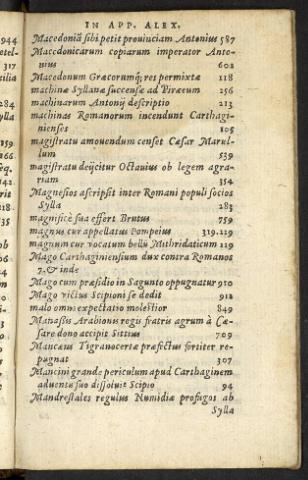 IN APP. ALEX.
Macedoniā sibi petit prouinciam Antonius 587
Macedonicarum copiarum imperator Anto-
nius 602
Macedonum Græcorumq; res permixtæ 118
machinæ Syllanæ succensæ ad Piræeum 256
machinarum Antonij descriptio 213
machinas Romanorum incendunt Carthagi-
nienses 105
magistratu amouendum censet Cæsar Marul-
lum 539
magistratu deijcitur Octauius ob legem agra-
riam 354
Magnesios ascripsit inter Romani populi socios
Sylla 283
magnificè sua effert Brutus 759
magnus cur appellatus Pompeius 219.229
magnum cur vocatum bellū Mithridaticum 229
Mago Carthaginiensium dux contra Romanos
7. & inde
Mago cum præsidio in Sagunto oppugnatur 910
Mago victus Scipioni se dedit 912
malo omni expectatio molestior 849
Manassus Arabionis regis fratris agrum à Cæ-
sare dono accipit Sittius 709
Mancæus Tigranocertæ præfectus fortiter re-
pugnat 307
Mancini grande periculum apud Carthaginem
aduentu suo dissoluit Scipio 94
Mandrestales regulus Numidiæ profugos ab
Sylla
944
etel-
317
cilia
284
ylla
159
166
eq.
142
erit
218
35
ob
06-